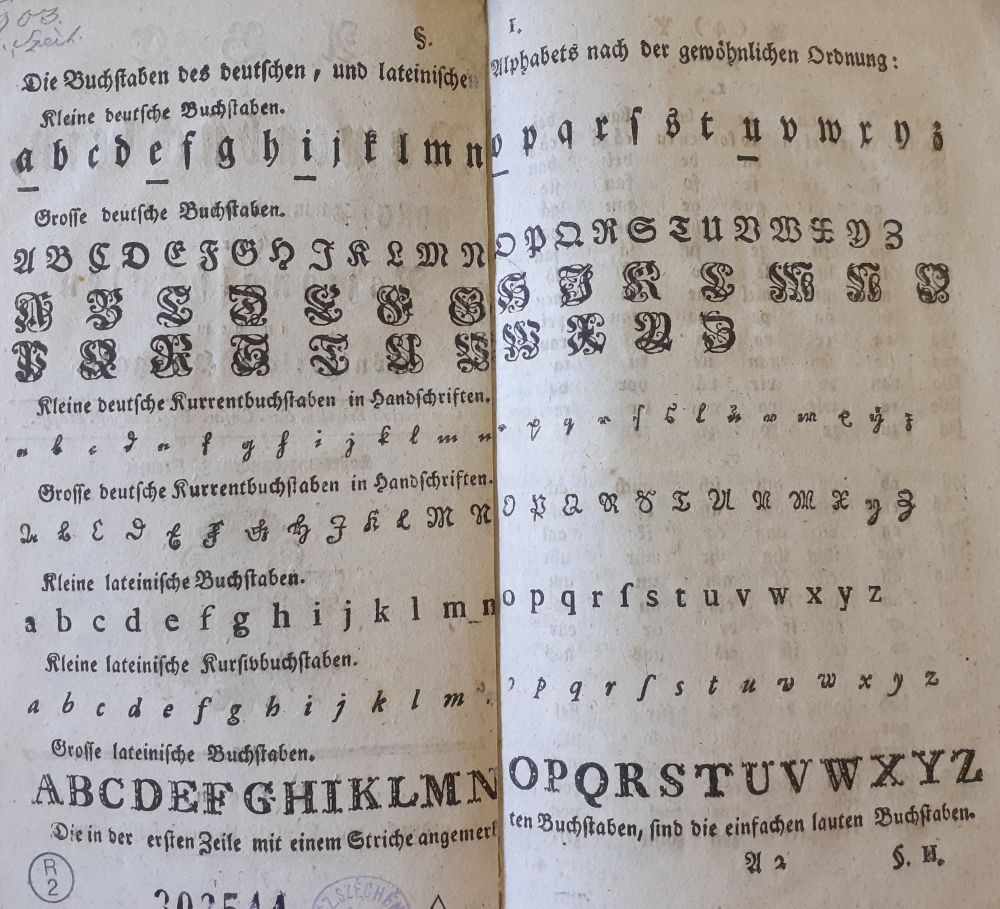 903.
Szeit.
§. I.
Die Buchſtaben des deutſchen, und lateiniſchen Alphabets nach der gewöhnlichen Ordnung:
Kleine deutſche Buchſtaben.
a b c d e f g h i j k l m n o p q r ſ s t u v w x y z
Groſſe deutſche Buchſtaben.
A B C D E F G H J K L M N O P Q R S T U V W X Y Z
A B C D E F G H J K L M N O
P Q R S T U V W X Y Z
Kleine deutſche Kurrentbuchſtaben in Handſchriften.
a b c d e f g h i j k l m n o p q r ſ s t u v w x y z
Groſſe deutſche Kurrentbuchſtaben in Handſchriften.
A B C D E F G H J K L M N O P Q R S T U V W X Y Z
Kleine lateiniſche Buchſtaben.
a b c d e f g h i j k l m n o p q r ſ s t u v w x y z
Kleine lateiniſche Kurſivbuchſtaben.
a b c d e f g h i j k l m p q r ſ s t u v w x y z
Groſſe lateiniſche Buchſtaben.
A B C D E F G H I K L M N O P Q R S T U V W X Y Z
Die in der erſten Zeile mit einem Striche angemerkten Buchſtaben, ſind die einfachen lauten Buchſtaben.
A 2 §. II.
R
2